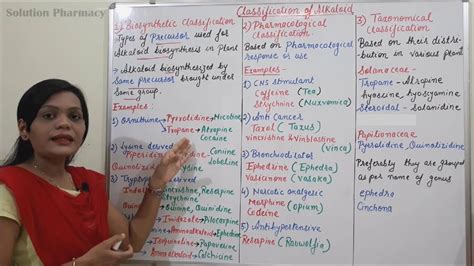 Solution Pharmacy
Classification of Alkaloid
1) Biosynthetic Classification
Types of Precursor used for
Alkaloid biosynthesis in Plant
→ Alkaloid biosynthesized by
Same precursor brought under
Same group.
Examples:
1) Ornithine → Pyrrolidine → Nicotine
→ Tropane → Atropine
Cocaine
2) Lysine derived
Piperidine - Coniine
Lobeline
Quinolizidine
3) Tryptophan
Indole
Vincristine, Reserpine
Strychnine
Quinine, Quinidine
Imidazole → Pilocarpine
Emetine
Isoquinoline → Papaverine
Amino alkaloid → Colchicine
2) Pharmacological
Classification
Based on Pharmacological
response or use
Examples -
1) CNS stimulant
Caffeine (Tea)
Strychnine (Nuxvomica)
2) Anti cancer
Taxol (Taxus)
vincristine & vinblastine
(vinca)
3) Bronchodilator
Ephedrine (Ephedra)
Vasicine (Vasaka)
4) Narcotic analgesic
Morphine (opium)
Codeine
5) Antihypertensive
Reserpine (Rauwolfia)
3) Taxonomical
Classification
Based on their distri-
bution in various plant
Solanaceae -
Tropane - Atropine
hyoscine, hyoscyamine
Steroidal - Solanine
Papilionaceae
Pyrolidine, Quinolizidine
Preferably they are grouped
as per name of genus
ephedra
Cinchona